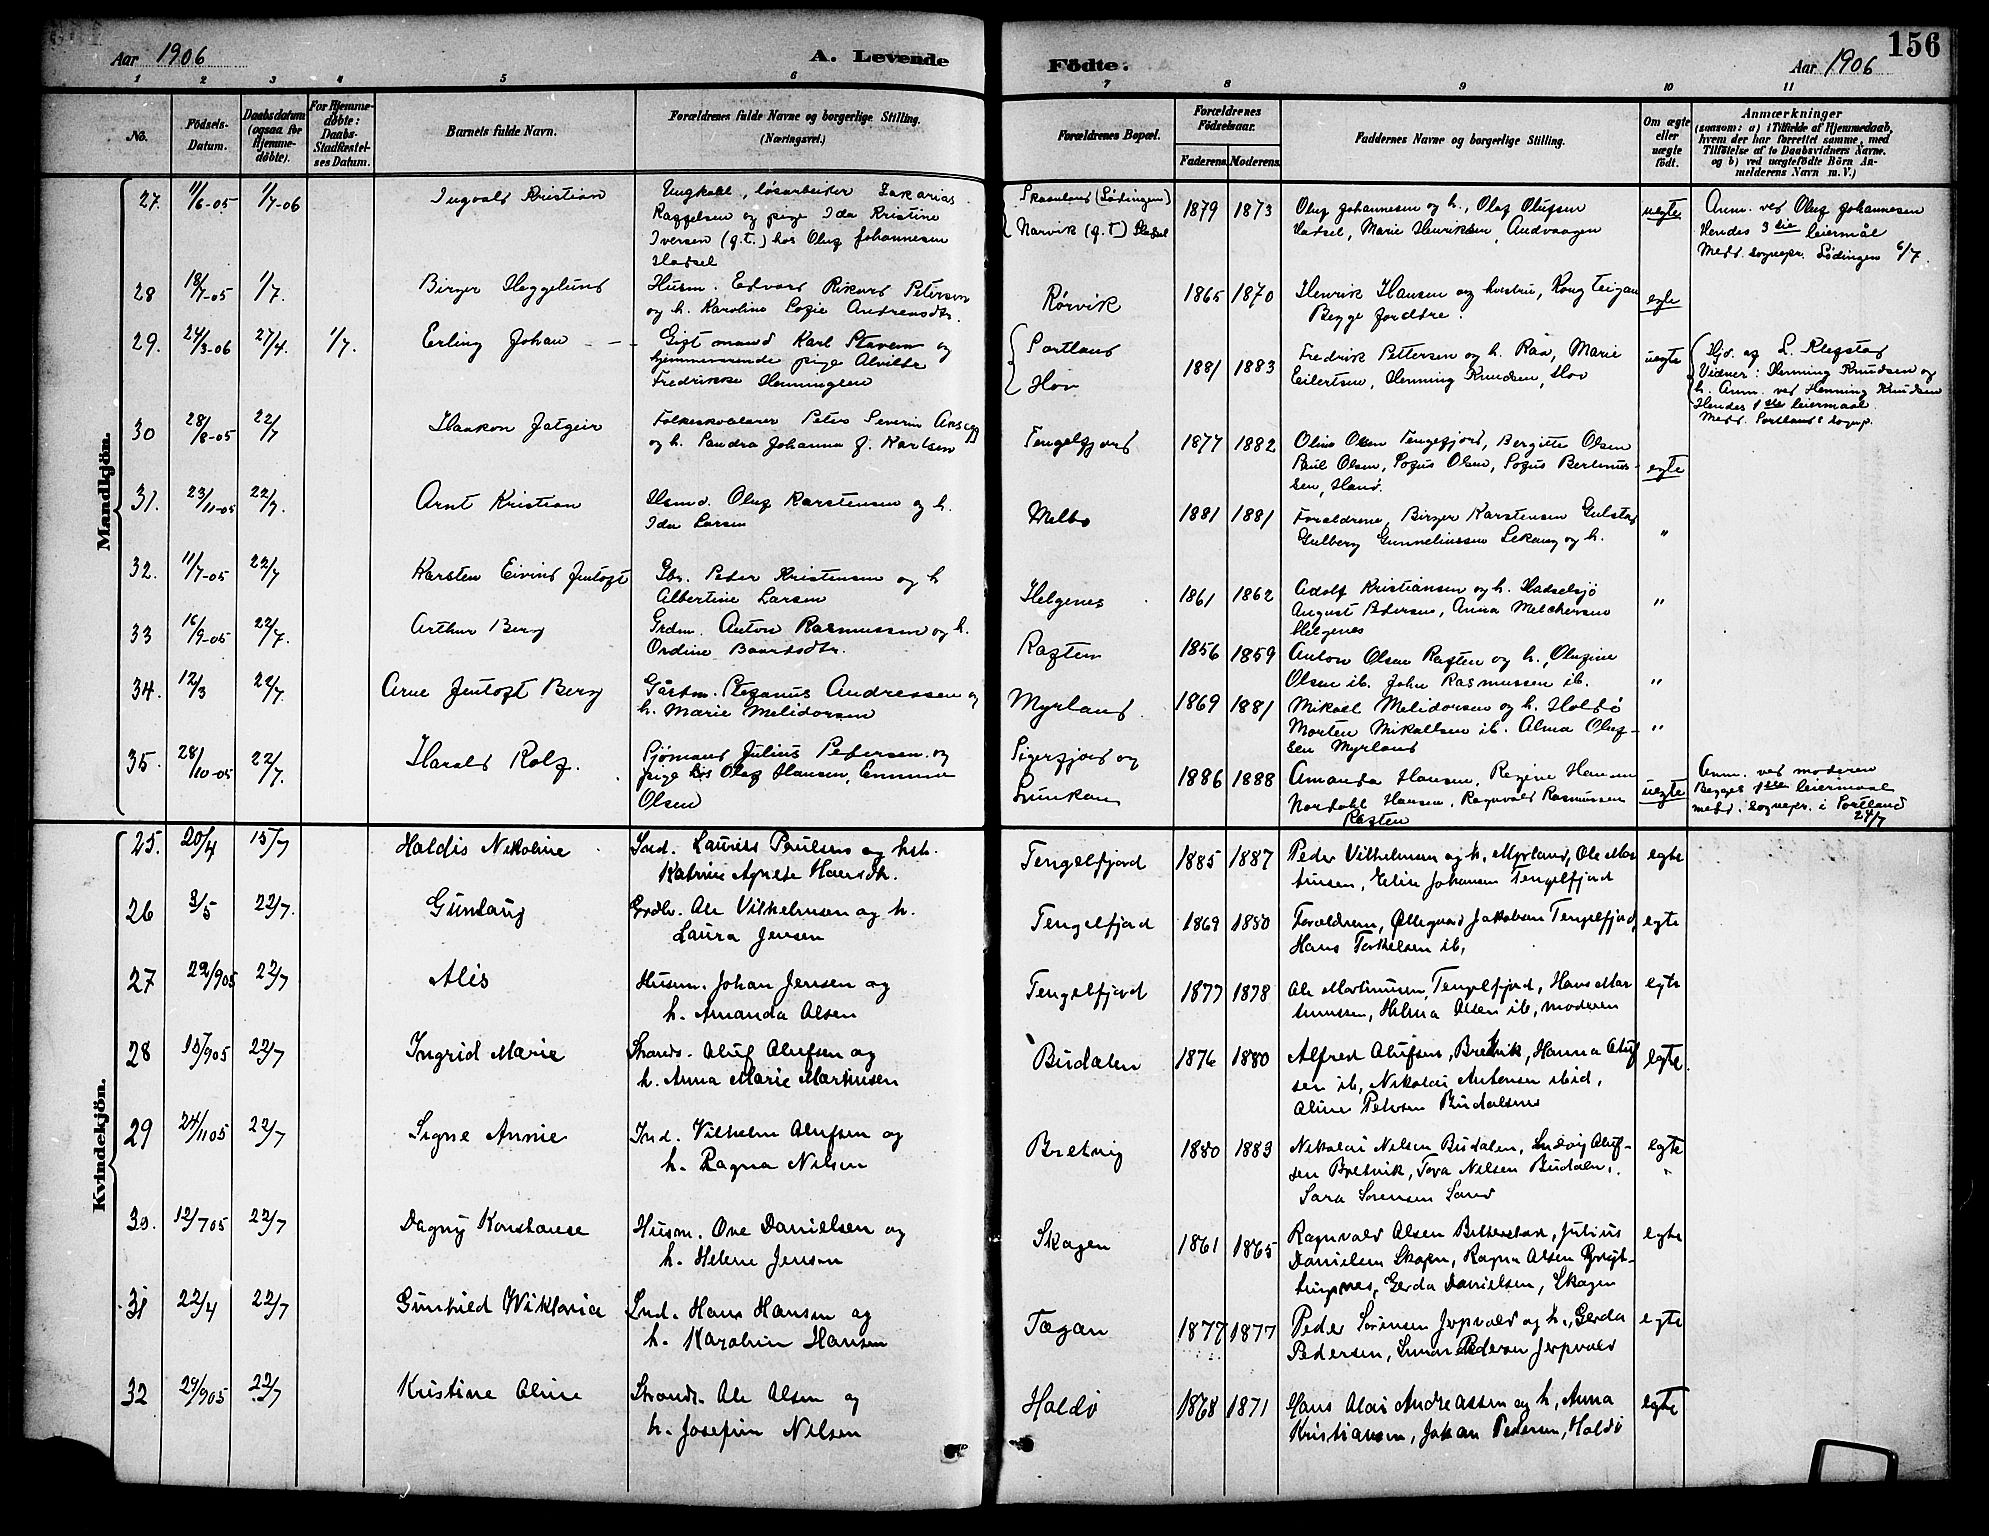 156
Aar 1906
A. Levende
Födte.
Aar 1906
1 2 3 4 5 6 7 8 9 10 11
No.
Födsels-
Datum.
Daabsdatum
(ogsaa for
Hjemme-
döbte).
For Hjemme-
døbte:
Daabs-
Stadfæstel-
ses Datum.
Barnets fulde Navn.
Forældrenes fulde Navne og borgerlige Stilling.
(Næringsvei.)
Forældrenes Bopæl.
Forældrenes
Födselsaar.
Faderens. Moderens.
Faddernes Navne og borgerlige Stilling.
Om ægte
eller
uægte
födt.
Anmærkninger
(saasom: a) i Tilfælde af Hjemmedaab,
hvem der har forrettet samme, med
Tilföielse af to Daabsvidners Navne.
og b) ved uægtefödte Börn An-
melderens Navn m. V.)
Mandkjön.
27. 11/6-05 1/7-06 Ingvald Kristian
Ungkarl, løsarbeider Zakarias
Raggelsen og pige Ida Kristine
Iversen (g.t.) hos Oluf Johannesen
Hadsel
(Lødingen)
Narvik (g.t)
1879 1873
Oluf Johannesen og h., Olaf Olufsen
Hadsel, Marie Henriksen, Andvaagen
uegte
Anm. ved Oluf Johannesen
Hendes 3die leiermål
Medd. sognepr. Lødingen 6/7.
28 18/7-05 1/7. Birger Heggelund
Husm. Edvard Rikard Petersen
og h. Karoline Sofie Andreasdtr.
Rörvik
1865 1870
Henrik Hansen og hustru,
Begge fordtre.
egte
29. 24/3-06 27/4. 1/7. Erling Johan
Gift mand Karl Stavem og
hjemmeværende pige Alvilde
Fredrikke Henningsen
Portland
Hov
1881 1883
Fredrik Pettersen og h. Raa, Marie
Eilertsen, Henning Knudsen, Hov
uegte
Hjd. af L. Klefstad
Vidner: Henning Knudsen og
h. Anm. ved Henning Knudsen
Hendes 1ste leiermaal.
Medd. Portlands sognep.
30 28/8-05 22/7 Haakon Jatgeir
Peter Severin
og h. Sandra Johanna f. Karlsen
Tengelfjord
1877 1882
Oline Olsen Tengelfjord, Bergitte Olsen
Paul Olsen, Sofus Olsen, Sofus Berthius-
sen, Hand.
egte
31. 23/11-05 22/7. Arnt Kristian
Husmd. Oluf Karstensen og h.
Ida Larsen
Melbo
1881 1881
Forældrene, Birger Karstensen Gulstad
Gulberg Gunneliussen Lekang og h.
"
32. 11/7-05 22/7 Karsten Eivind Jentoft
Gbr. Peder Kristensen og h
Albertine Larsen
Helgenes
1861 1862
Adolf Kristiansen og h. Hadselsjø
August Pedersen, Anna Melchersen
Helgenes
"
33 16/9-05 22/7. Arthur Berg
Grdm. Anton Rasmussen og h.
Ordine Baardsdtr.
Raften
1856 1859
Anton Olsen Raften og h., Olufine
Olsen ib. John Rasmussen ib.
"
34. 12/3 22/7. Arne Jentoft Berg
Gårdm. Stefanus Andreasen og
h. Marie Melidorsen
Myrland.
1869 1881
Mikael Melidorsen og h. Holdö
Morten Mikalsen ib. Alma Oluf-
sen Myrland
"
35. 28/10-05 22/7. Harald Rolf.
Sjømand Julius Pedersen og
pige hos Oluf Hansen, Emma
Olsen
Sigerfjord og
Lunkan
1886 1888
Amanda Hansen, Regine Hansen
Nordahl Hansen, Ragnvald Rasmussen
Raften
uegte
Anm. ved moderen
Begges 1ste leiermaal
medd. sognepr. i Portland
24/7
Kvindekjön.
25. 20/4 15/7 Haldis Nikoline
Ind. Laurits Paulsen og hst.
Katrine Agnete Hansdtr.
Tengelfjord
1885 1887
Peder Vilhelmsen og h. Myrland, Ole Mar
tinsen, Elise Johansen Tengelfjord
egte
26 3/5 22/7. Gunlaug
Grdbr. Ole Vilhelmsen og h.
Laura Jensen
Tengelfjord
1869 1880
Forældrene, Øllegaard Jakobsen Tengelfjord,
Hans Torkelsen ib,
egte
27 22/905 22/7 Alis
Husm. Johan Jensen og
h. Amanda Olsen
Tengelfjord
1877 1878
Ole Martinusen, Tengelfjord, Hans Mar
tinussen, Helma Olsen ib, moderen
egte
28 15/905 22/7 Ingrid Marie
Strands. Oluf Olufsen og
h. Anna Marie Martinsen
Budalen
1876 1880
Alfred Olufsen, Bretvik, Hanna Oluf
sen ib, Nikolai Antonsen ibid,
Aline Petersen Budalen
egte
29 24/1105 22/7 Signe Annie
Ind. Vilhelm Olufsen og
h. Ragna Nilsen
Bretvig
1880 1883
Nikolai Nilsen Budalen, Ludvig Oluf-
sen Bretvik, Tora Nilsen Budalen,
Sara Sørensen Sand
egte
"
30. 12/705 22/7 Dagny Konstanse
Husm. Ove Danielsen og
h. Helene Jensen
Skagen
1861 1865
Ragnvald Olsen Bitterstad, Julius
Danielsen Skagen, Ragna Olsen
Gerda Danielsen, Skagen
egte
31 22/4 22/7 Gunhild Wiktoria
Ind. Hans Hansen og
h. Karoline Hansen
Tøgan
1877 1877
Peder Sørensen Jerpvald og h., Gerda
Pedersen, Pedersen Jerpvald
egte
32 29/905 22/7 Kristine Oline
Strands. Ole Olsen og
h. Josefine Nilsen
Holdö
1868 1871
Hans Olai Andreassen og h, Anna
Kristiansen, Johan Pedersen, Holdö
egte